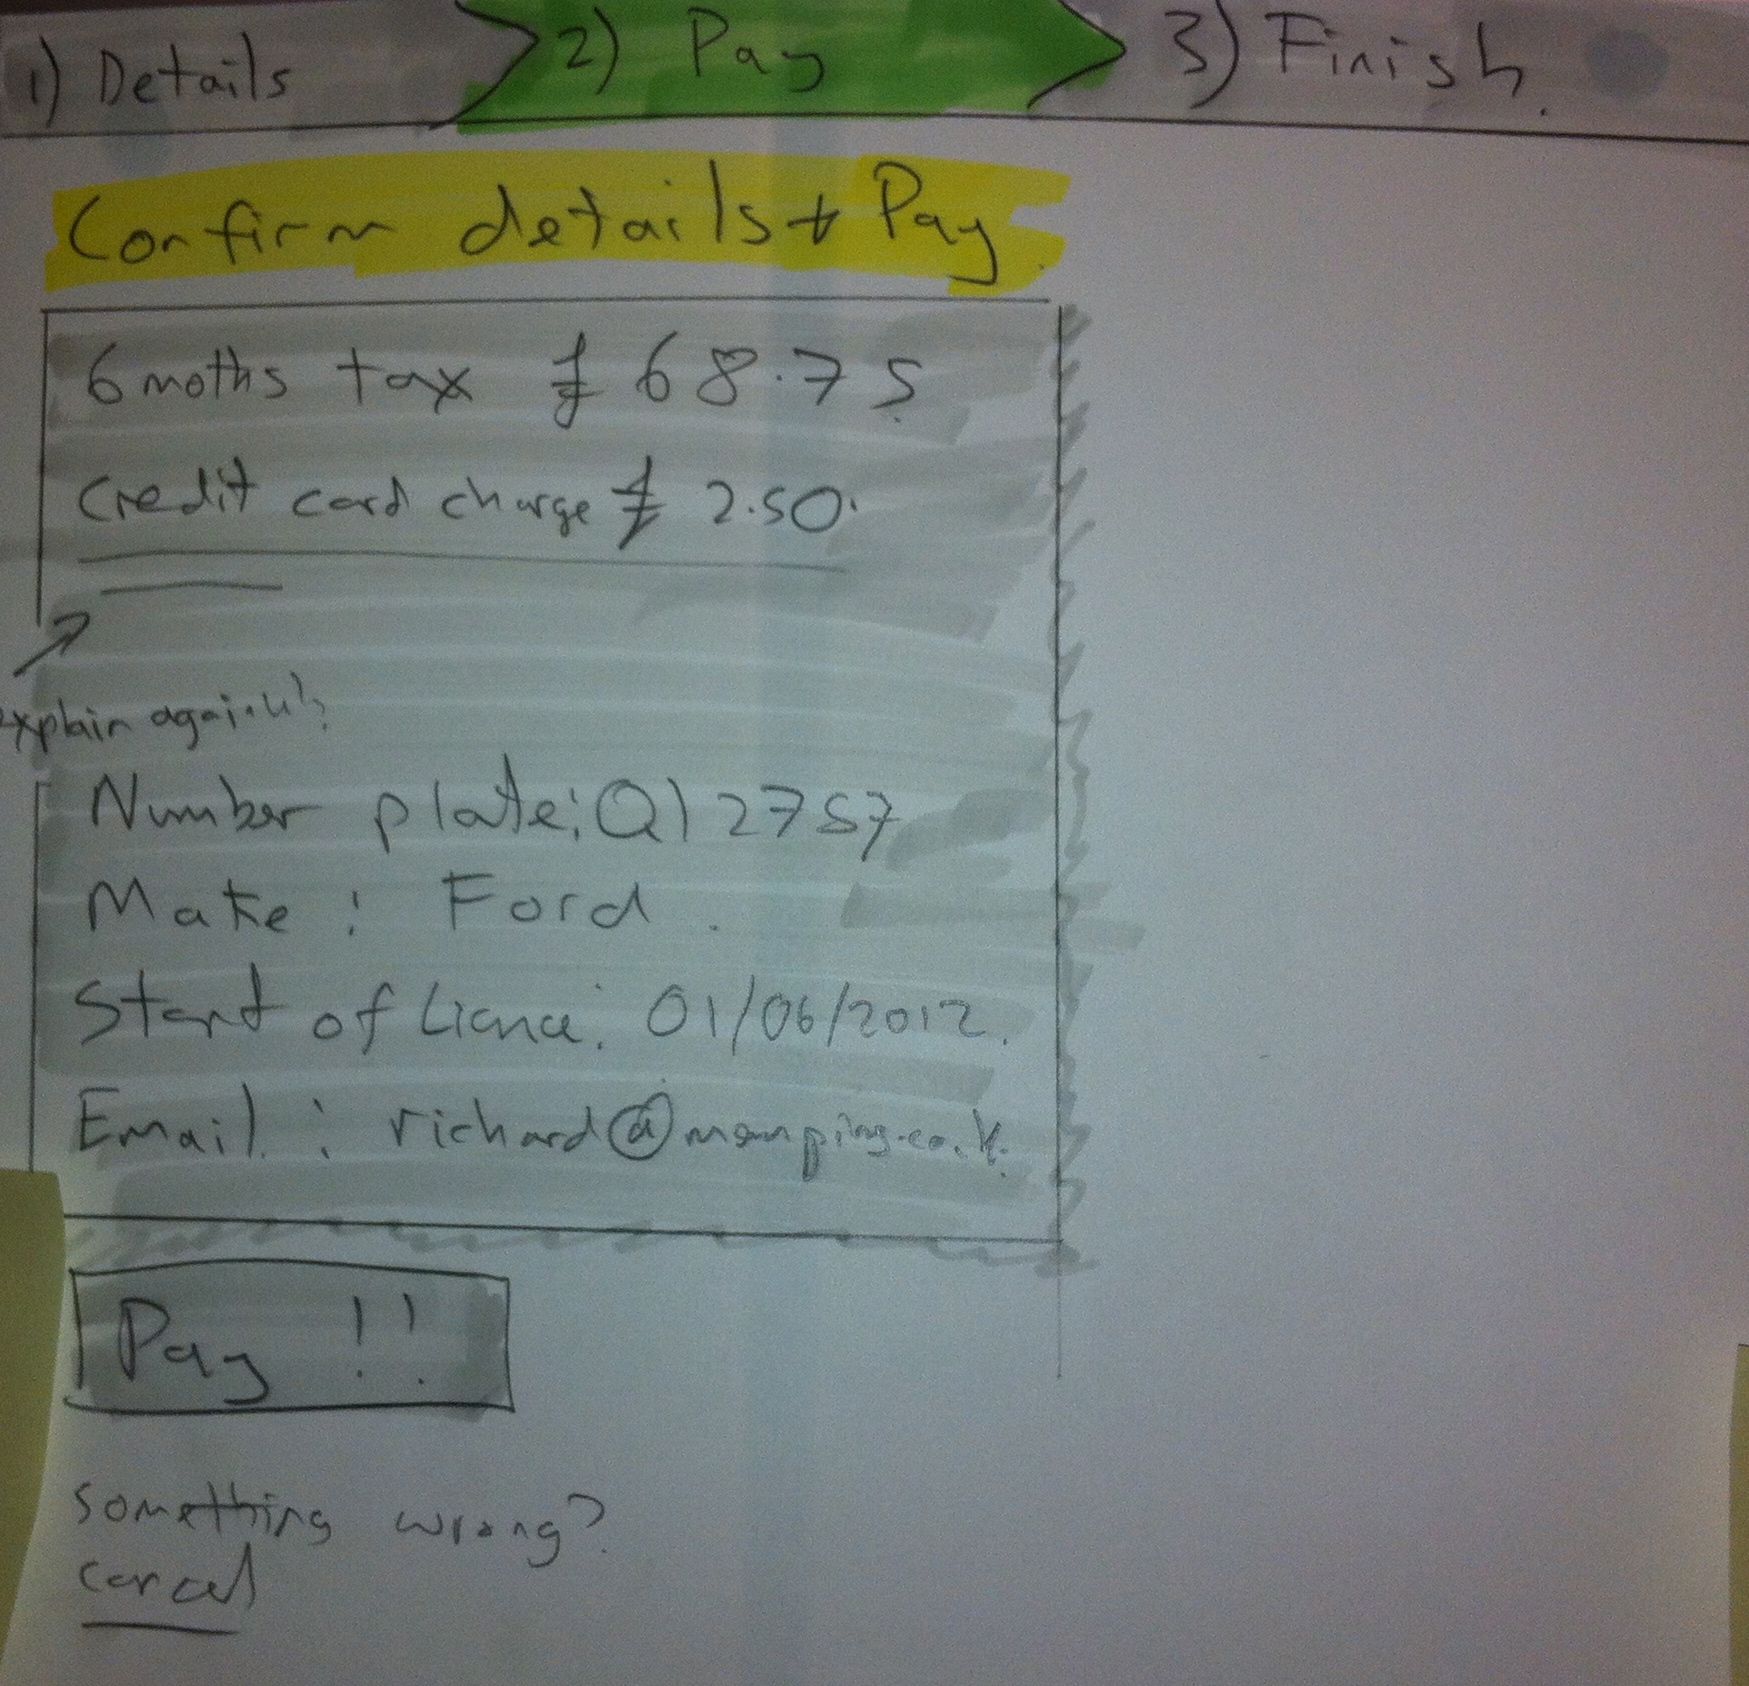 1) Details 2) Pay 3) Finish.
Confirm details + Pay.
6 moths tax £ 68.75
Credit card charge £ 2.50.
explain again!?
Number plate: Q12757
Make : Ford.
Start of Licnce: 01/06/2012.
Email : richard@
Pay !!
something wrong?
cancel